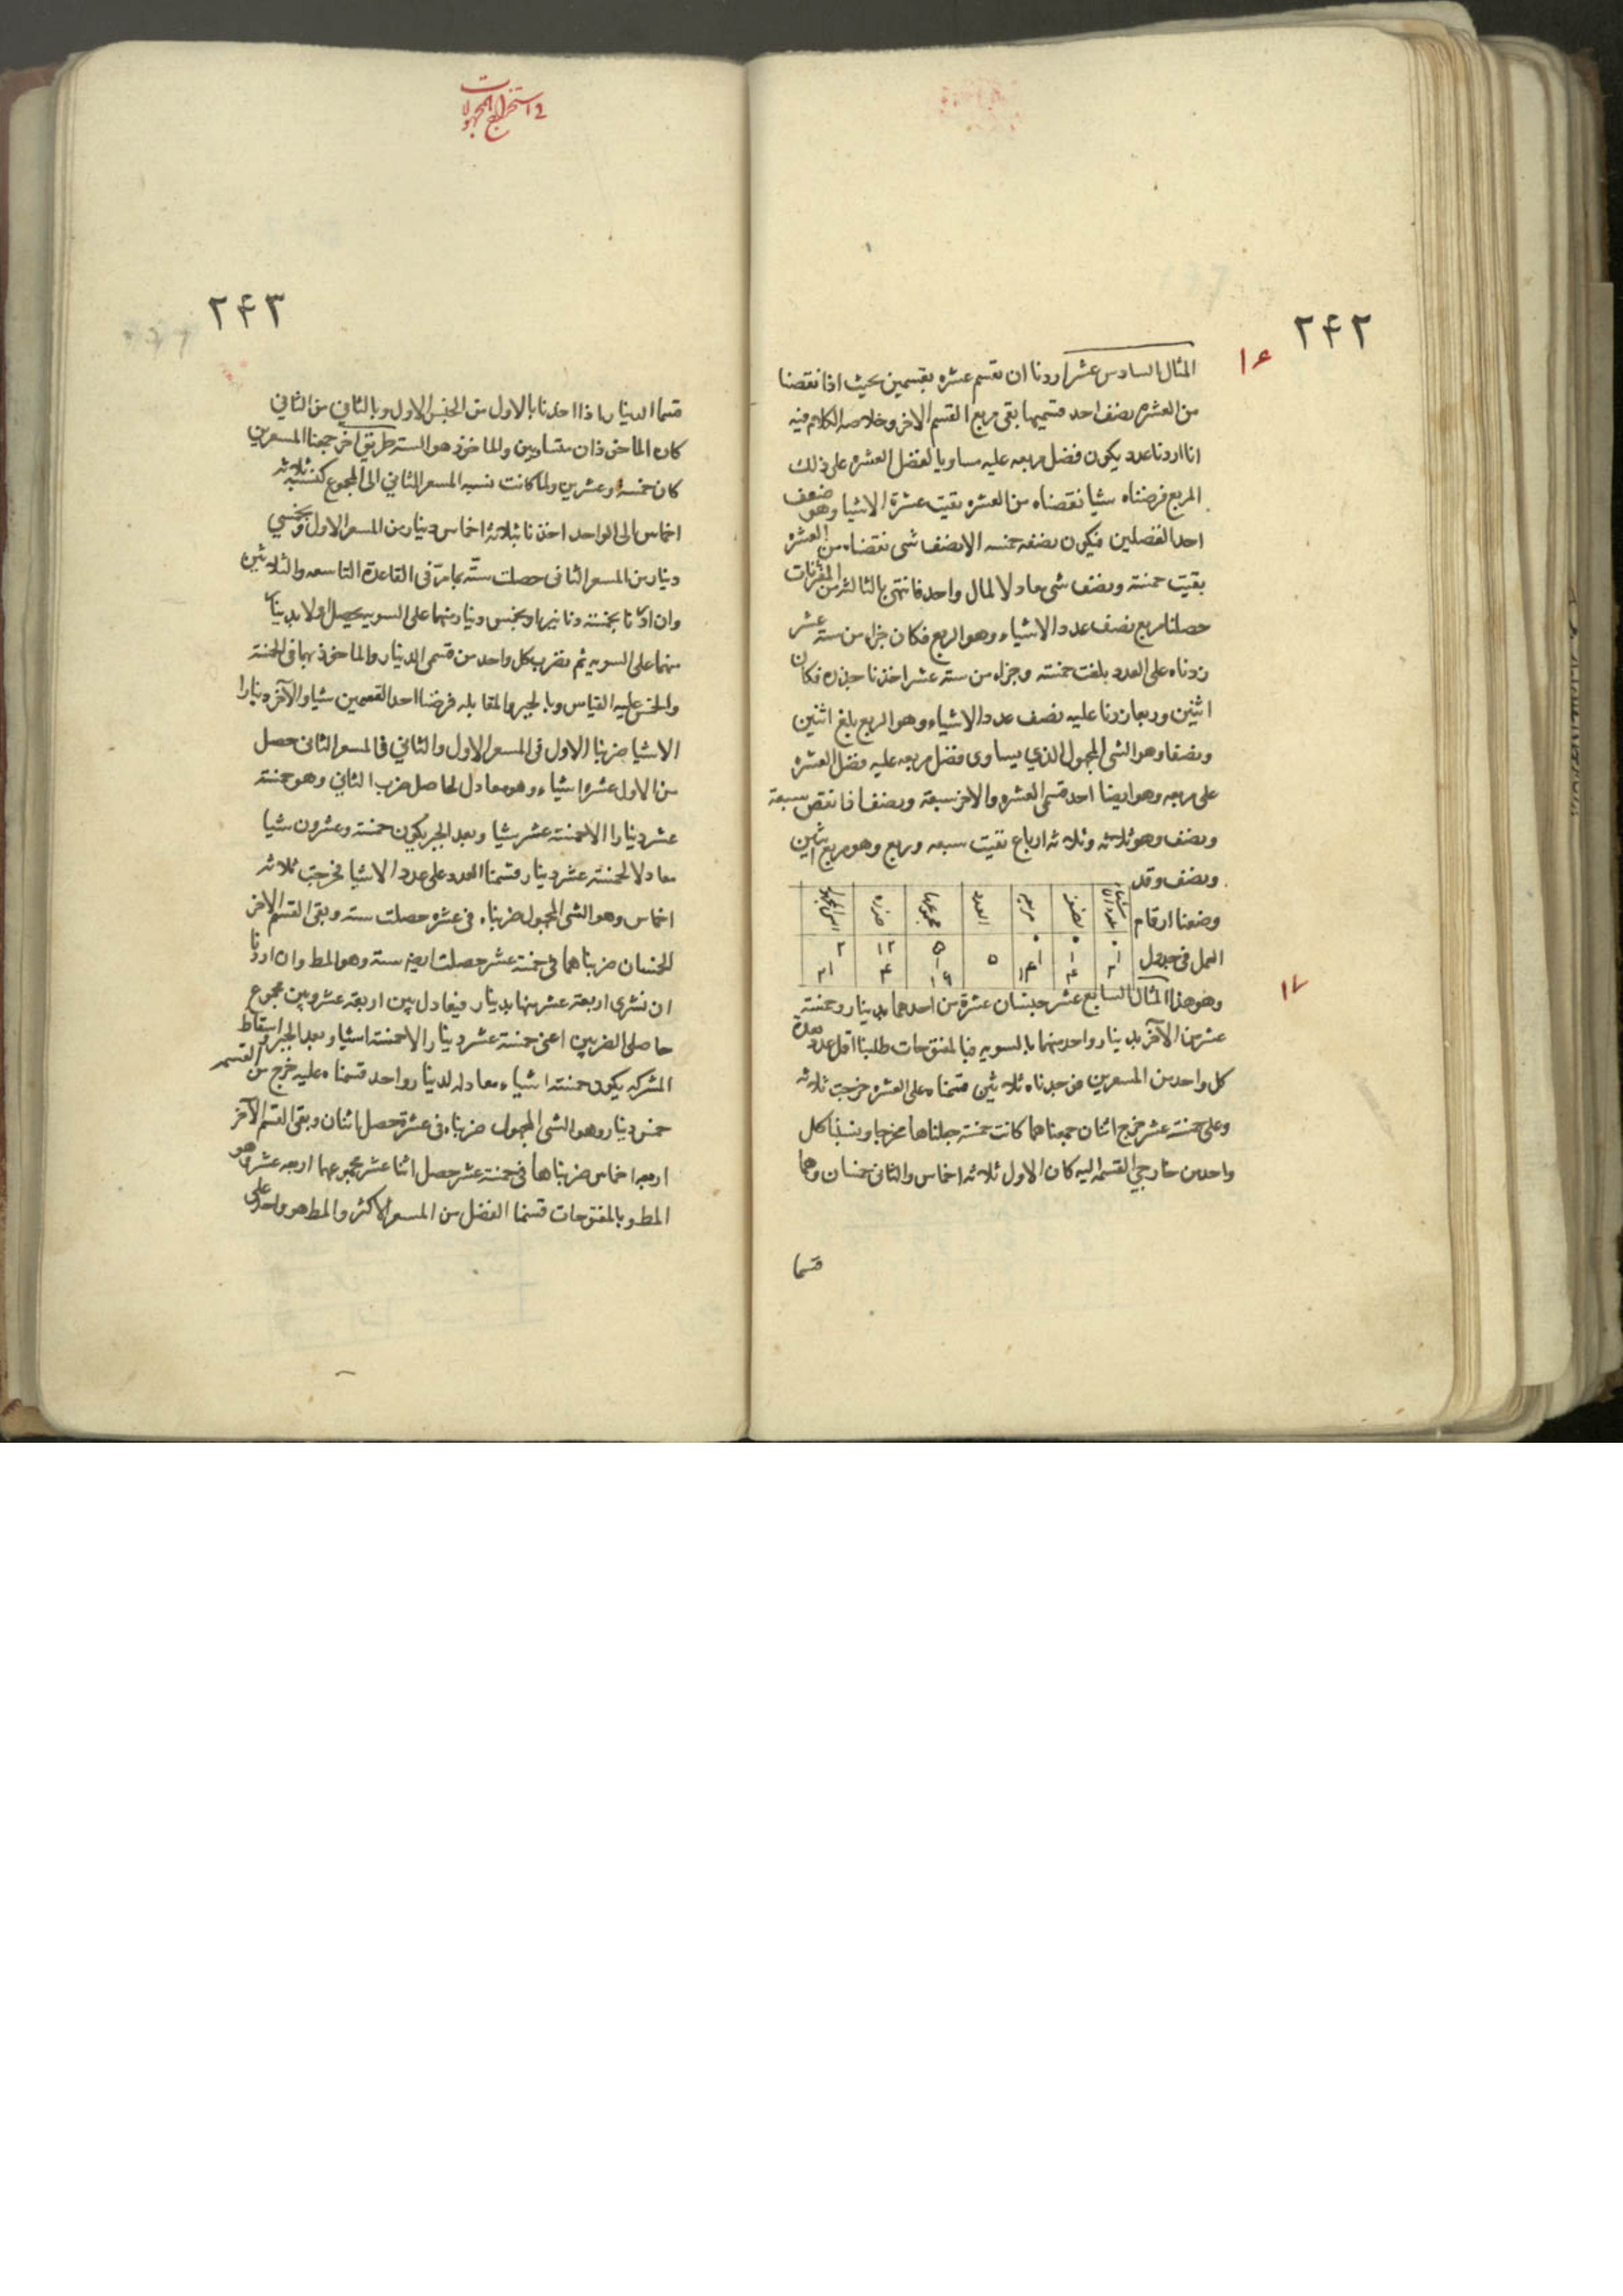 ٢۴٢
١۶
المثال السادس عشر اردنا ان نقسم عشره بقسمين بحيث اذا نقصنا
من العشره نصف احد قسميها بقى مربع القسم الاخر وخلاصه الكلام فيه
انا اردنا عدد يكون فضل مربعه عليه مساويا لفضل العشره على ذلك
المربع فرضناه شيا نقصناه من العشره بقيت عشرة الا شيا وهو ضعف
احد الفضلين فيكون نصفه خمسه الا نصف شى نقصناه من العشره
بقيت خمسة ونصف شى معادلا لمال واحد فانتهى بالثالثه من المقترنات
حصلنا مربع نصف عدد الاشياء وهو الربع فكان جزاء من سته عشر
زدناه على العدد بلغت خمسته وجزاء من سته عشر اخذنا جذره فكان
اثنين وربعا زدنا عليه نصف عدد الاشياء وهو الربع بلغ اثنين
ونصفا وهو الشى المجهول الذي يساوى فضل مربعه عليه فضل العشره
على مربعه وهو ايضا احد قسمى العشره والاخر سبعة ونصف فانقص سبعة
ونصف وهو ثلاثه وثلاثه ارباع بقيت سبعه وربع وهو مربع اثنين
ونصف وقد
وضعنا ارقام
العمل فى جدول
نصفه مربعه العدد مجموعها جذره
وهو هذا المثال السابع عشر جنسان عشرة من احدهما بدينار وخمسة
١٧
عشر من الآخر بدينار واحد منهما بالسويه فبالمفتوحات طلبنا اقل عدد يعده
كل واحد من المسعرين فوجدناه ثلاثين قسمناه على العشره خرجت ثلاثه
وعلى خمسة عشر خرج اثنان جمعناهما كانت خمسة جعلناها مخرجا ونسبنا كل
واحد من خارجي القسمه اليه كان الاول ثلاثه اخماس والثانى خمسان وهما
قسما
فى استخراج المجهولات
٢۴٣
قسما الدينار واذا اخذنا بالاول من الجنس الاول وبالثاني من الثاني
كان الماخوذان متساويين والماخوذ هو الستة طريق اخر جمعنا المسعرين
كان خمسة وعشرين ولما كانت نسبه المسعر الثاني الى المجموع كنسبة ثلاثه
اخماس الى الواحد اخذنا بثلاثه اخماس دينار من المسعر الاول وبخمسي
دينار من المسعر الثانى حصلت ستة بما مرّ فى القاعدة التاسعه والثلاثين
وان اردنا بخمسة دنانير او بخمس دينار منهما على السويه يحصل اولا بدينار
منهما على السويه ثم نضرب كل واحد من قسمى الدينار والماخوذ بهما فى الخمسة
والخمس عليه القياس وبالجبر والمقابله فرضنا احد القسمين شيا والآخر دينارا
الا شيا ضربنا الاول فى المسعر الاول والثاني فى المسعر الثانى حصل
من الاول عشره اشياء وهو معادل لحاصل ضرب الثاني وهو خمسة
عشر دينارا الا خمسة عشر شيا وبعد الجبر يكون خمسة وعشرون شيا
معادلا لخمسة عشر دينار قسمنا العدد على عدد الاشيا فخرجت ثلاثه
اخماس وهو الشى المجهول ضربناه فى عشره حصلت سته وبقى القسم الاخر
الخمسان ضربناهما فى خمسة عشر حصلت ايضا ستة وهو المط وان اردنا
ان نشرى اربعة عشر منهما بدينار فيعادل بين اربعة عشر وبين مجموع
حاصلي الضربين اعنى خمسة عشر دينار الا خمسة اشيا وبعد الجبر واسقاط
المشترك يكون خمسة اشياء معادله لدينار واحد قسمناه عليه خرج من القسم
خمس دينار وهو الشى المجهول ضربناه فى عشرة حصل اثنان وبقى القسم الآخر
اربعه اخماس ضربناها فى خمسة عشر حصل اثنا عشر مجموعهما اربعه عشر وهو
المط وبالمفتوحات قسمنا الفضل من المسعر الاكثر والمط هو واحد على